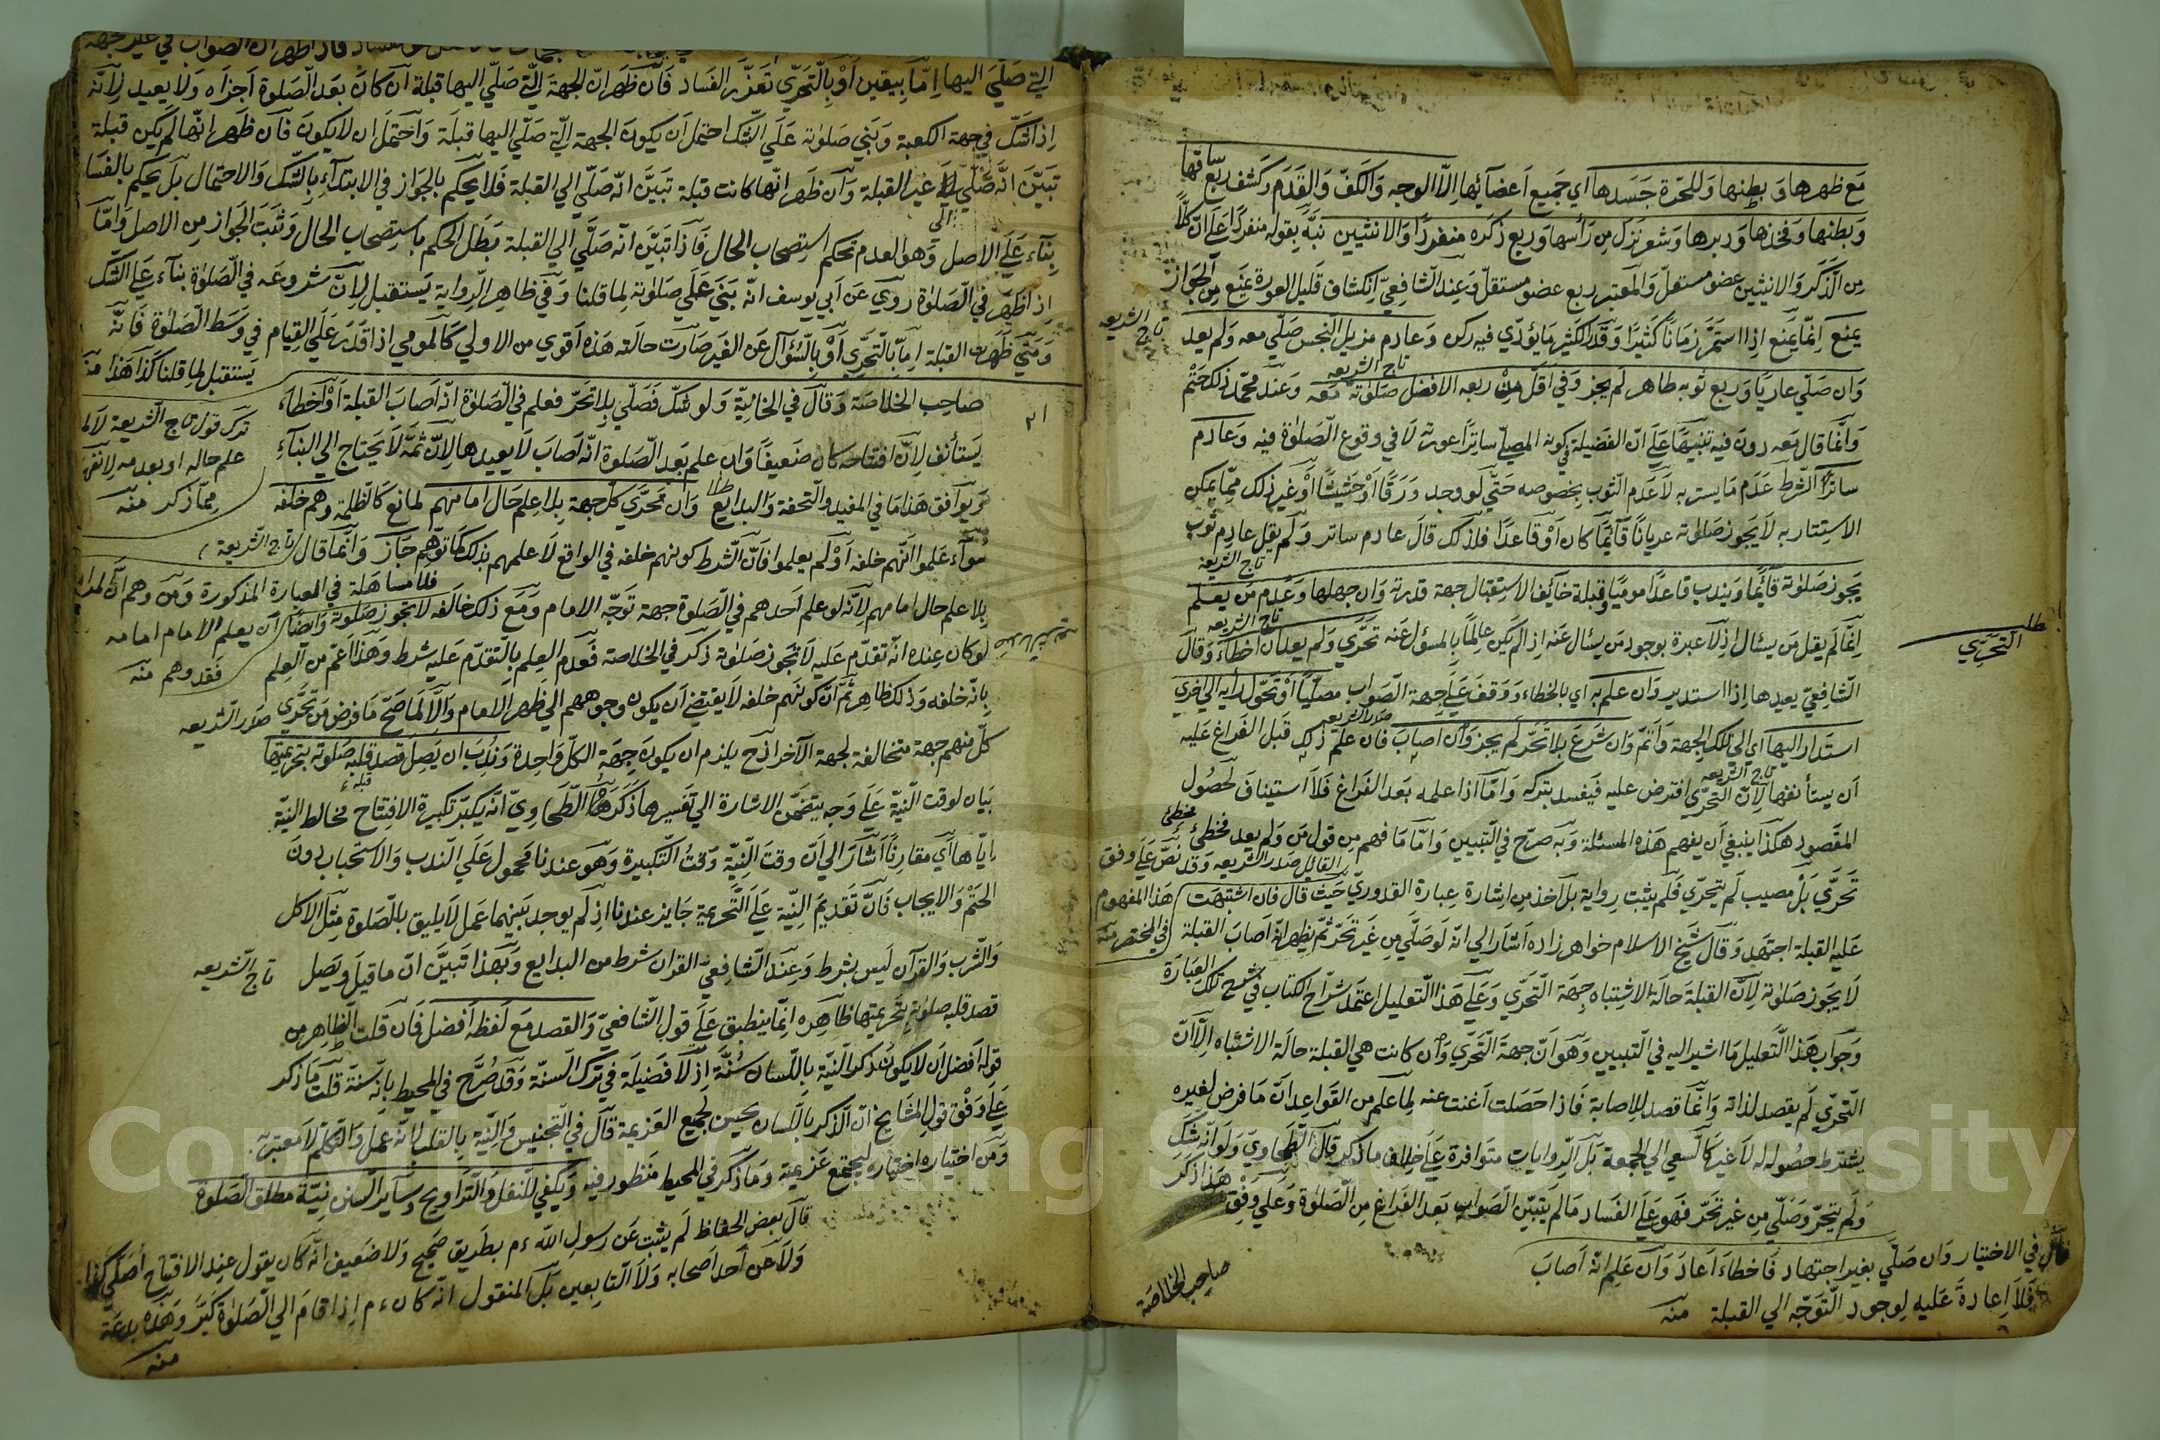 مع ظهرها وبطنها وللحرة جسدها أي جميع اعضائها الا الوجه والكف والقدم وكشف ربع ساقها
وبطنها وفخذها ودبرها وشعر نزل من رأسها وربع ذكره منفردا والانثيين نبّه بقوله منفردا على ان كلّا
من الذكر والانثيين عضو مستقل والمعتبر ربع عضو مستقل وعند الشافعي انكشاف قليل العورة يمنع من الجواز
يمنع انما يمنع اذا استمر زمانا كثيرا وقدر الكثير ما يؤدّي فيه ركن وعادم مزيل النجس صلّى معه ولم يعد
تاج الشريعه
وان صلّى عاريا وربع ثوبه طاهر لم يجز وفي اقلّ من ربعه الافضل صلوته معه وعند محمد ذلك حتم
تاج الشريعه
وانّما قال معه دون فيه تنبيها على ان الفضيلة في كونه المصلّي ساترا عورته لا في وقوع الصلوة فيه وعادم
ساتر الشرط عدم ما يستر به لا عدم الثوب بخصوصه حتى لو وجد ورقا أو حشيشا أو غير ذلك مما يمكن
الاستتار به لا يجوز صلوته عريانا قائما كان أو قاعدا فلذلك قال عادم ساتر ولم يقل عادم ثوب
يجوز صلوته قائما ويندب قاعدا موميا وقبلة خائف الاستقبال جهة قدرته وان جهلها وعدم من يعلم
تاج الشريعه
انما لم يقل من يسئال اذ لا عبرة بوجود من يسئال عنه اذا لم يكن عالما بالمسؤل عنه تحرّى ولم يعد ان اخطاء وقال
تاج الشريعه
التحري
الشافعي يعيدها اذا استدبر وان علم به اي بالخطاء ووقف على جهة الصواب مصلّيا أو تحوّل رأيه الى اخرى
استدار اليها أي الى تلك الجهة وأتم وان شرع بلا تحرّ لم يجز وان اصاب فان علم ذلك قبل الفراغ عليه
صدر الشريعه
ان يستأنفها لان التحرّي افترض عليه فيفسد بتركه واما اذا علمه بعد الفراغ فلا استيناف لحصول
تاج الشريعه
المقصود هكذا ينبغي ان يفهم هذه المسئلة وبه صرّح في التبيين وامّا ما فهم من قول من ولم يعد مخطئ
تحرّى بل مصيب لم يتحرّى فلم يثبت رواية بل اخذ من اشارة عبارة القدوريّ حيث قال فان اشتبهت
القائل صدر الشريعه وقد نصّ على وفق
هذا المفهوم
في المختصر منه
عليه القبلة اجتهد وقال شيخ الاسلام خواهر زاده اشار الى انه لو صلّى من غير تحرّ ثم يظهر انه اصاب القبلة
لا يجوز صلوته لان القبلة حالة الاشتباه جهة التحرّي وعلى هذا التعليل اعتمد شرّاح الكتاب في شرح تلك العبارة
وجواب هذا التعليل ما اشير اليه في التبيين وهو ان جهة التحرّي وان كانت هي القبلة حالة الاشتباه الا ان
التحرّي لم يقصد لذاته وانما قصد للاصابة فاذا حصلت اغنت عنه لما علم من القواعد ان ما فرض لغيره
يشترط حصوله لا غير كالسعي الى الجمعة بل الروايات متوافرة على خلاف ما ذكر قال الطحاوي ولو انه شك
ولم يتحرّ وصلّى من غير تحرّ فهو على الفساد ما لم يتبيّن الصواب بعد الفراغ من الصلوة وعلى وفق هذا ذكر
صاحب الخلاصة
قال في الاختيار وان صلّى بغير اجتهاد فاخطاء اعاد وان علم انه اصاب
فلا اعادة عليه لوجود التوجّه الى القبلة منه
التي صلّى اليها إمّا بيقين أو بالتحرّي تعذّر الفساد فان ظهر ان الجهة التي صلّى اليها قبلة ان كان بعد الصلوة اجزاه ولا يعيد لانه
اذا شك في جهة الكعبة وبنى صلوته على الشك احتمل ان يكون الجهة التي صلّى اليها قبلة واحتمل ان لا يكون فان ظهر انها لم يكن قبلة
تبيّن انه صلّى الى غير القبلة وان ظهر انها كانت قبلة تبيّن انه صلّى الى القبلة فلا يحكم بالجواز في الابتداء بالشك والاحتمال بل يحكم بالفساد
بناء على الاصل وهو العدم بحكم استصحاب الحال فاذا تبيّن انه صلّى الى القبلة بطل الحكم باستصحاب الحال وثبت الجواز من الاصل واما
اذ اظهر في الصلوة روي عن أبي يوسف انه بنى على صلوته لما قلنا وفي ظاهر الرواية يستقبل لان شروعه في الصلوة بناء على الشك
ومتى ظهرت القبلة اما بالتحرّي أو بالسؤال عن الغير صارت حالته هذه أقوى من الاولى كالمومي اذا قدر على القيام في وسط الصلوة فانه
يستقبل لما قلنا كذا هذا منه
صاحب الخلاصة وقال في الخانيّة ولو شكّ فصلّى بلا تحرّ فعلم في الصلوة انه اصاب القبلة أو اخطاء
يستأنف لان افتتاحه كان ضعيفا وان علم بعد الصلوة انه اصاب لا يعيدها لان ثمّة لا يحتاج الى البناء
ويوافق هذا ما في المفيد والتحفة والبدايع وان تحرّى كلّ جهة بلا علم حال امامهم لمانع كالظلمة وهم خلفه
ترك قول تاج الشريعة لا لما
علم حاله او بعدمه لانفهم
مما ذكر منه
سواء علموا انهم خلفه أو لم يعلموا فان الشرط كونهم خلفه في الواقع لا علمهم بذلك كما توهم جاز وانما قال
تاج الشريعة
بلا علم حال امامهم لانه لو علم أحدهم في الصلوة جهة توجّه الامام ومع ذلك خالفه لا يجوز صلوته وايضا
فلا مساهلة في العبارة المذكورة ومن وهم ان المراد
ان يعلم الامام امامه
فقد وهم منه
لو كان عنده انه تقدّم عليه لا تجوز صلوته ذكر في الخلاصة فعدم العلم بالتقدّم عليه شرط وهذا اعمّ من العلم
بانه خلفه وذلك ظاهر ثم ان كونهم خلفه لا يقتضي ان يكون وجوههم الى ظهر الامام والا لما صح ما فرض من تحرّي
صدر الشريعه
كلّ منهم جهة مخالفة لجهة الآخر اذ ح يلزم ان يكون جهة الكل واحدة وندب ان يصل قصد قلبه صلوته بتحريمتها
بيان لوقت النية على وجه يتضمّن الاشارة الى تفسيرها ذكره الطحاوي انه يكبّر تكبيرة الافتتاح مخالط النية
ايّاها أي مقارنا اشار الى ان وقت النية وقت التكبيرة وهو عندنا محمول على الندب والاستحباب دون
الحتم والايجاب فان تقديم النية على التحريمة جايز عندنا اذ لم يوجد بينهما عمل لا يليق بالصلوة مثل الاكل
والشرب والقرآن ليس بشرط وعند الشافعي القران شرط من البدايع وبهذا تبيّن ان ما قيل ويصل
تاج الشريعه
قصد قلبه صلوته بتحريمتها ظاهره انما ينطبق على قول الشافعي والقصد مع لفظه أفضل فان قلت الظاهر من
قوله افضل ان لا يكون ذكر النية باللسان سنّة اذ لا فضيلة في ترك السنّة وقد صرّح في المحيط بانّه سنة قلت ما ذكر
على وفق قول المشايخ ان الذكر باللسان يحسن لجمع العزيمة قال في التجنيس والنية بالقلب لانه عمل والتكلّم لا معتبر به
ومن اختاره اختاره ليجتمع عزيمته وما ذكر في المحيط منظور فيه ويكفي للنفل والتراويح وسائر السنن نية مطلق الصلوة
قال بعض الحفاظ لم يثبت عن رسول الله ءم بطريق صحيح ولا ضعيف انه كان يقول عند الافتتاح أصلّي كذا
ولا عن أحد اصحابه ولا التابعين بل المنقول انه كان ءم اذا قام الى الصلوة كبّر وهذه بدعة
منه